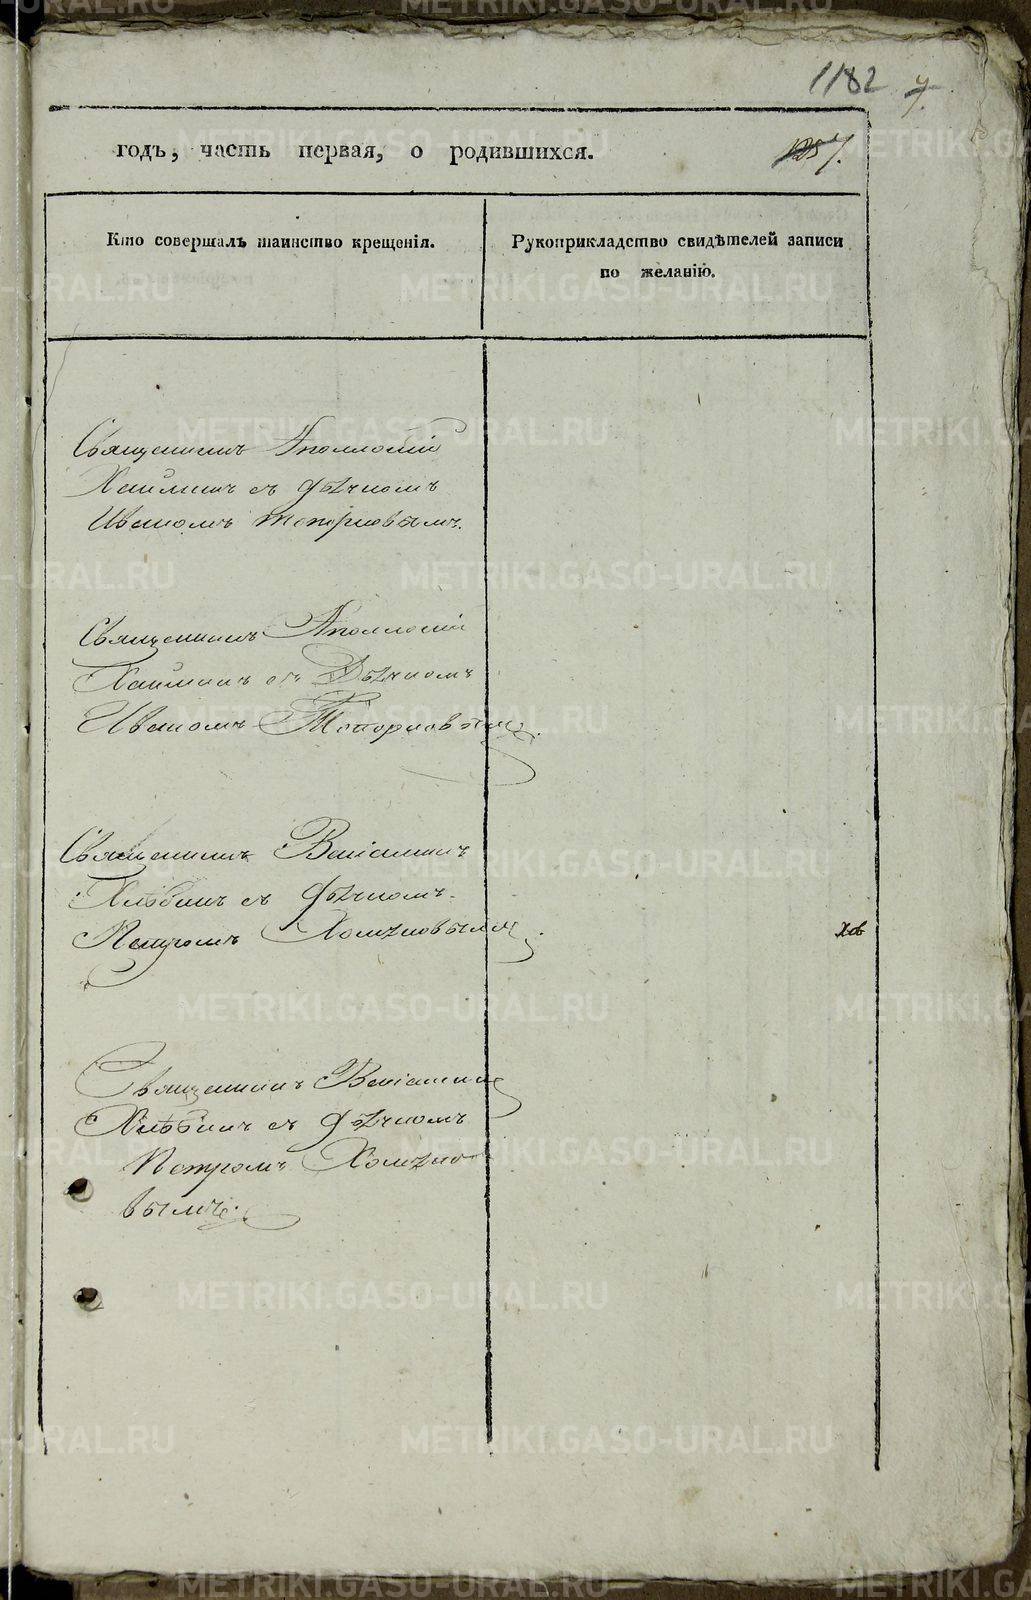 1182
годъ, часть первая, о родившихся.
Кто совершалъ таинство крещенія.
Рукоприкладство свидѣтелей записи
по желанію.
Священникъ Аполлосій
съ дьячкомъ
Иваномъ Топорковымъ.
Священникъ Аполлосій
съ Дьячкомъ
Иваномъ Топорковымъ.
Священникъ Веніаминъ
Хлѣбинъ съ дьячкомъ
Петромъ
Священникъ Веніаминъ
Хлѣбинъ съ дьячкомъ
Петромъ
вымъ.
METRIKI.GASO-URAL.RU